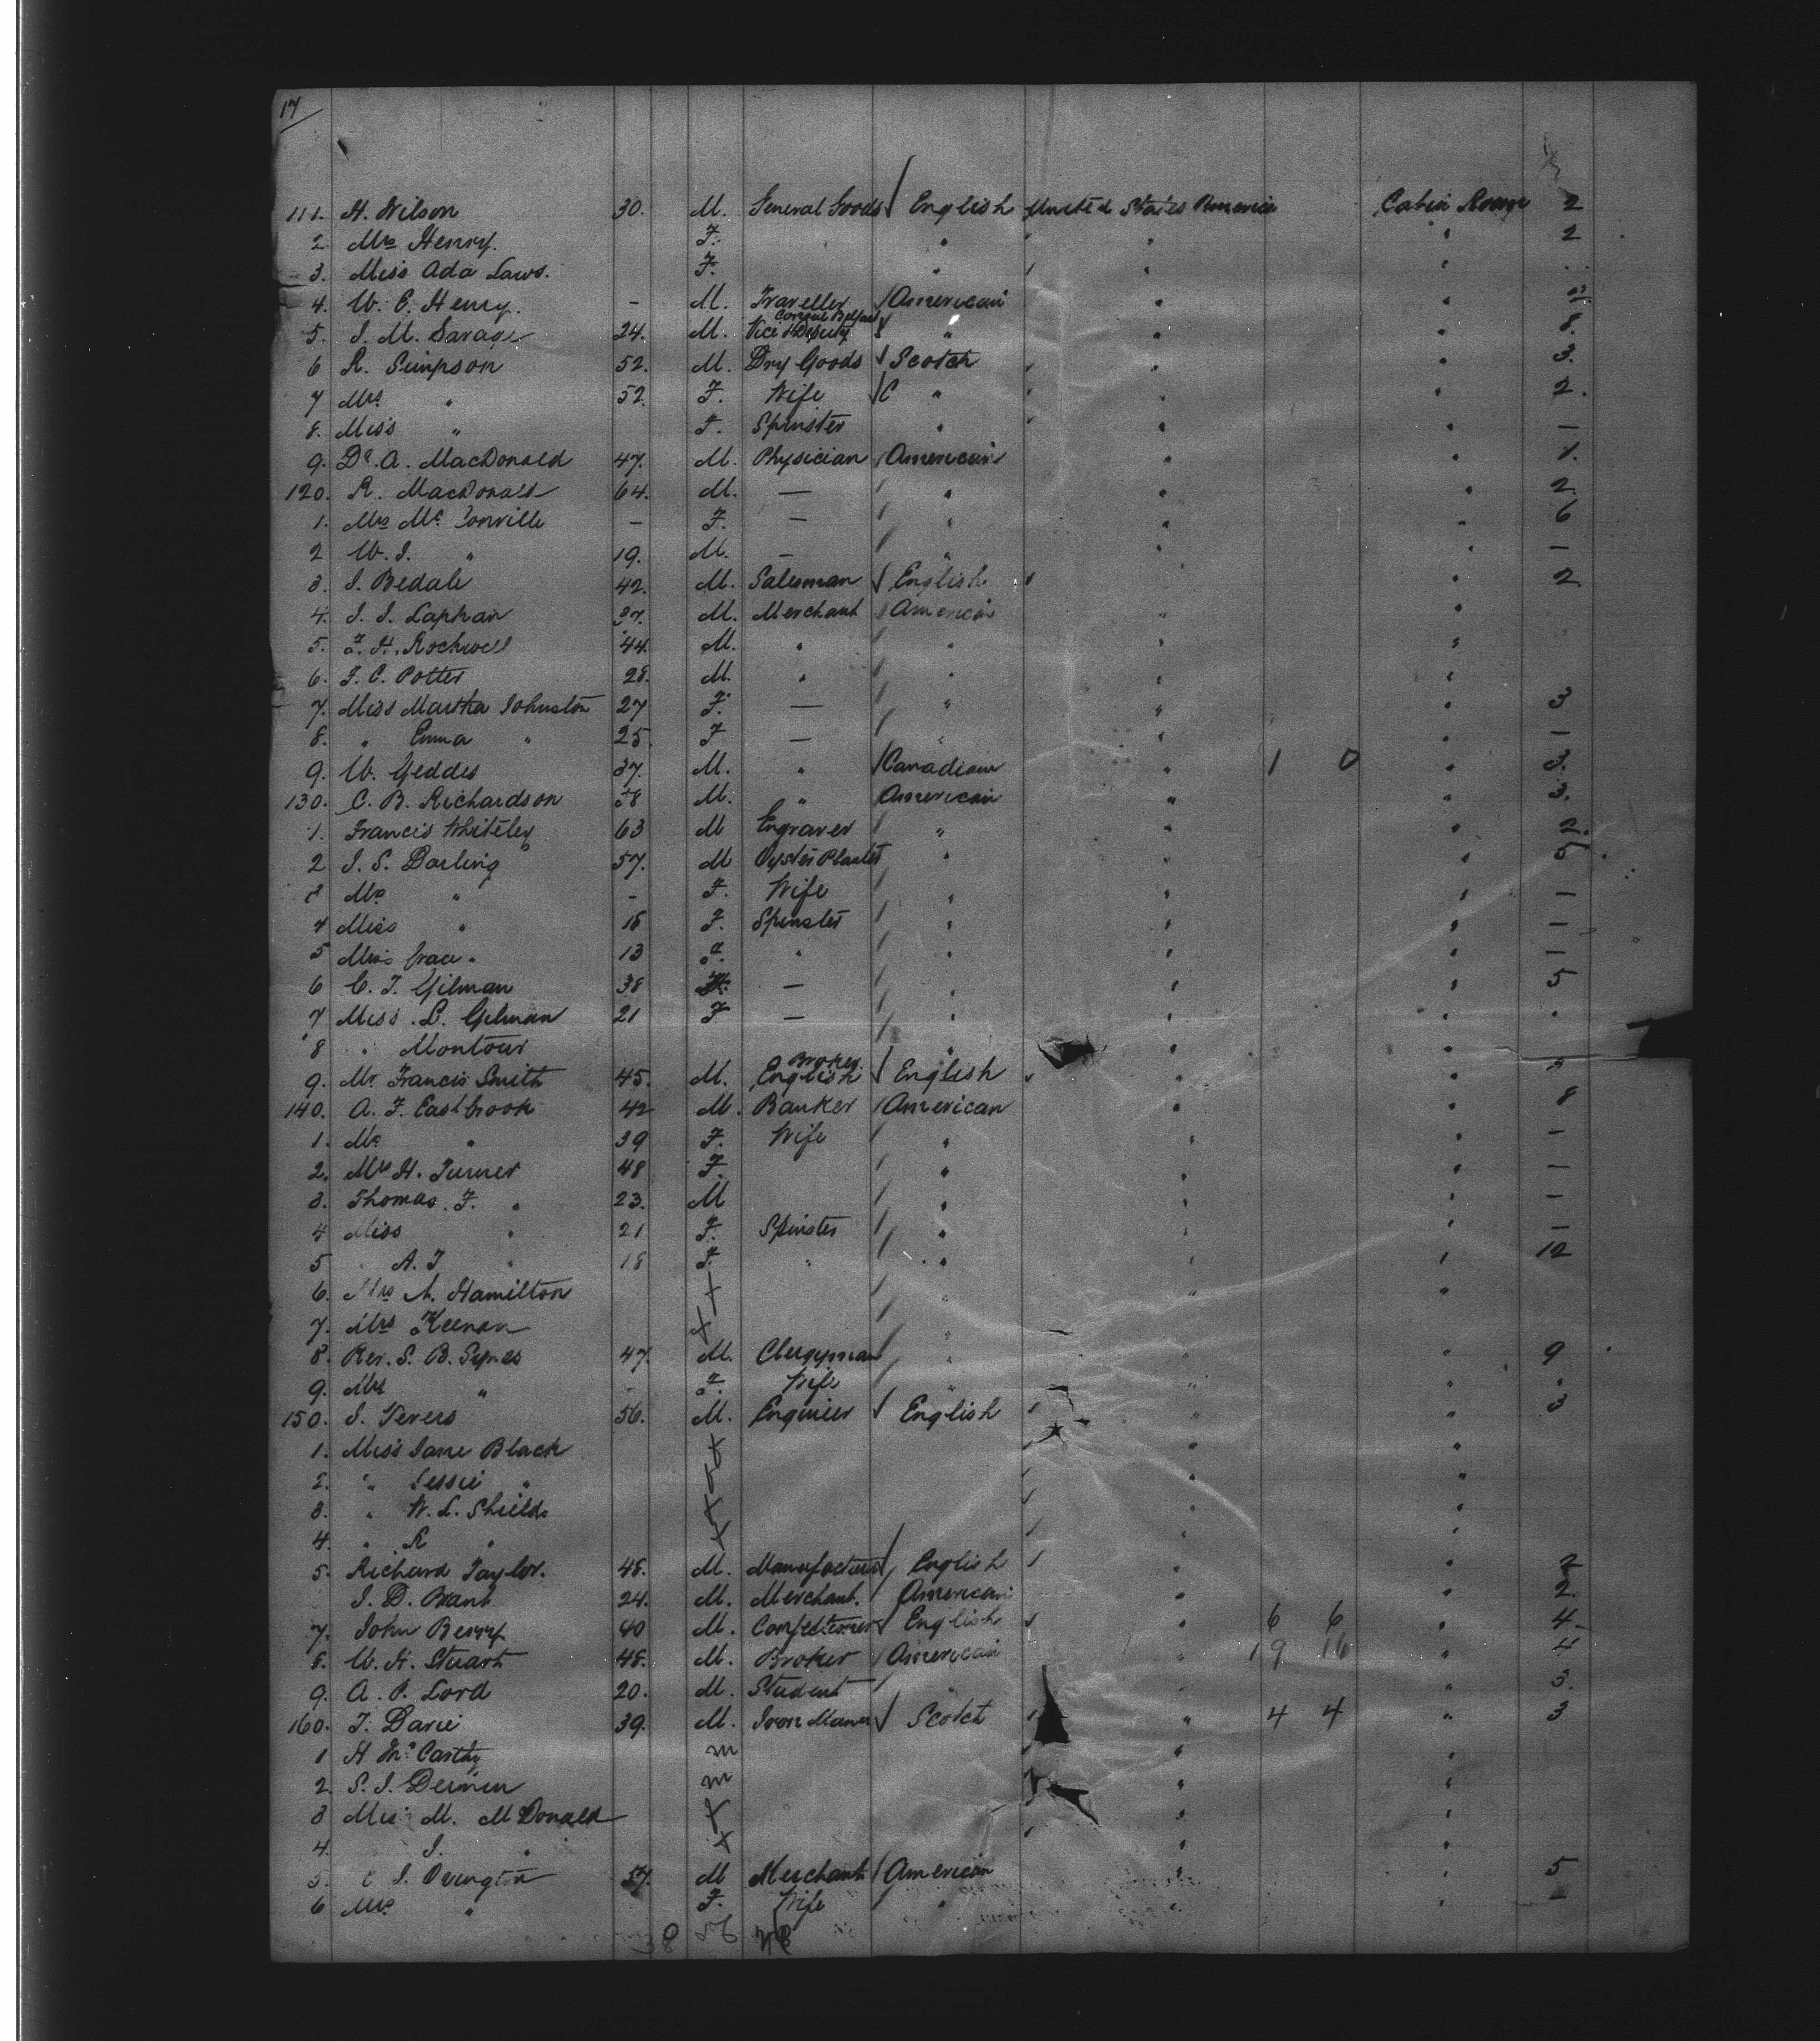 17
111. H. Wilson 30. M. General Goods English United States America Cabin Rome 2
2. Mrs Henry. F. " " " 2
3. Miss Ada Laws. F. " " "
4. W. E. Henry. - M. Traveller American " "
5. J. M. Savage 24. M. Vice & Deputy Consul Belfast " " " 8.
6 R. Simpson 52. M. Dry Goods Scotch " " 3.
7 Mrs " 52. F. Wife C " " " 2.
8. Miss " F. Spinster " " " —
9. Dr. A. MacDonald 47. M. Physician American " " 1.
120. R. MacDonald 64. M. — " " " 2.
1. Mrs Mc Conville - F. — " " " 6
2 W. J. " 19. M. — " " " —
3. J. Bedale 42. M. Salesman English " 2
4. J. J. Laphan 37. M. Merchant American " "
5. F. H. Rockwell 44. M. " " " "
6. F. C. Potter 28. M. " " "
7. Miss Martha Johnston 27 F. — " " " 3
8. " Emma " 25. F — " " " —
9. W. Geddes 37. M. " Canadian " 1 0 " 3.
130. C. B. Richardson 58 M. " American " " 3.
1. Francis Whiteley 63 M Engraver " " " 2.
2 J. S. Darling 57. M Oyster Planter " " " 5
3 Mrs " - F. Wife " " " —
4 Miss " 16 F. Spinster " " " —
5 Miss Grace " 13 F. " " " " —
6 C. T. Gilman 38 — " " " 5
7 Miss L. Gilman 21 F — " " " "
8 " Montour " " "
9. Mr. Francis Smith 45. M. English Broker English " " "
140. A. F. Eastbrook 42 M. Banker American " " 8
1. Mrs " 39 F. Wife " " " —
2. Mrs H. Turner 48 F. " " " —
3. Thomas. F. " 23. M " " " —
4 Miss " 21 F. Spinster " " " —
5 " A. J " 18 F. " " " " 12
6. Mrs A. Hamilton X " " "
7. Mrs Keenan X " "
8. Rev. S. B. 47. M. Clergyman " " " 9
9. Mrs " - F. Wife " " " "
150. J. Tevers 56. M. Engineer English " " 3
1. Miss Jane Black X " "
2. " Jessie " " "
3. " W. L. Shields X " "
4. " R " X " "
5. Richard Taylor. 48. M. Manufacturer English " 2
J. D. Brant 24. M. Merchant. American " 2.
7. John Berry 40 M. Confectioner English " 6 6 " 4
8. W. H. Stuart 48. M. Broker American " 19 16 " 4
9. A. P. Lord 20. M. Student " " " 3.
160. T. Davie 39. M. Scotch " 4 4 " 3
1 H McCarthy m " "
2. S. J. m " "
3 Miss M. McDonald X " "
4. J. " X " "
5. C J. Ovington 57. M Merchant American " " 5
6 Mrs " F. Wife " " " —
38 56 48